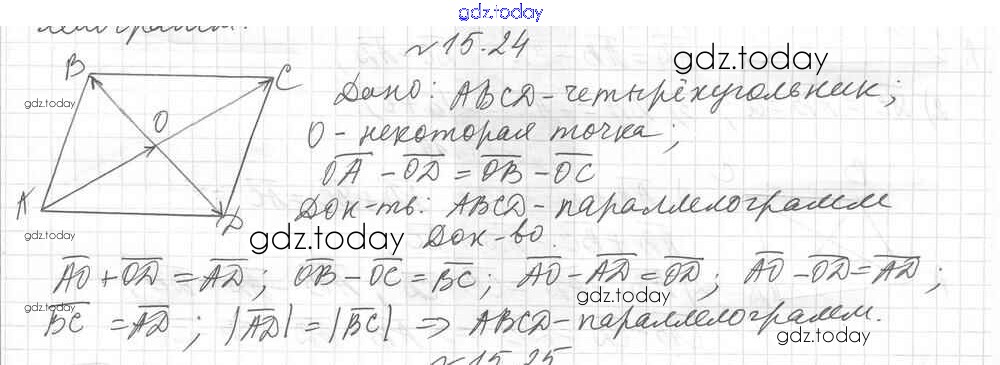 gdz.today
№ 15.24
gdz.today
B C
Дано: ABCD - четырёхугольник;
gdz.today
O
O - некоторая точка;
OA - OD = OB - OC
A D
Док-ть: ABCD - параллелограмм
gdz.today
gdz.today
Док-во.
AO + OD = AD; OB - OC = BC; AO - AD = OD; AO - OD = AD;
gdz.today
gdz.today
BC = AD; |AD| = |BC| => ABCD - параллелограмм.
gdz.today
№ 15.25